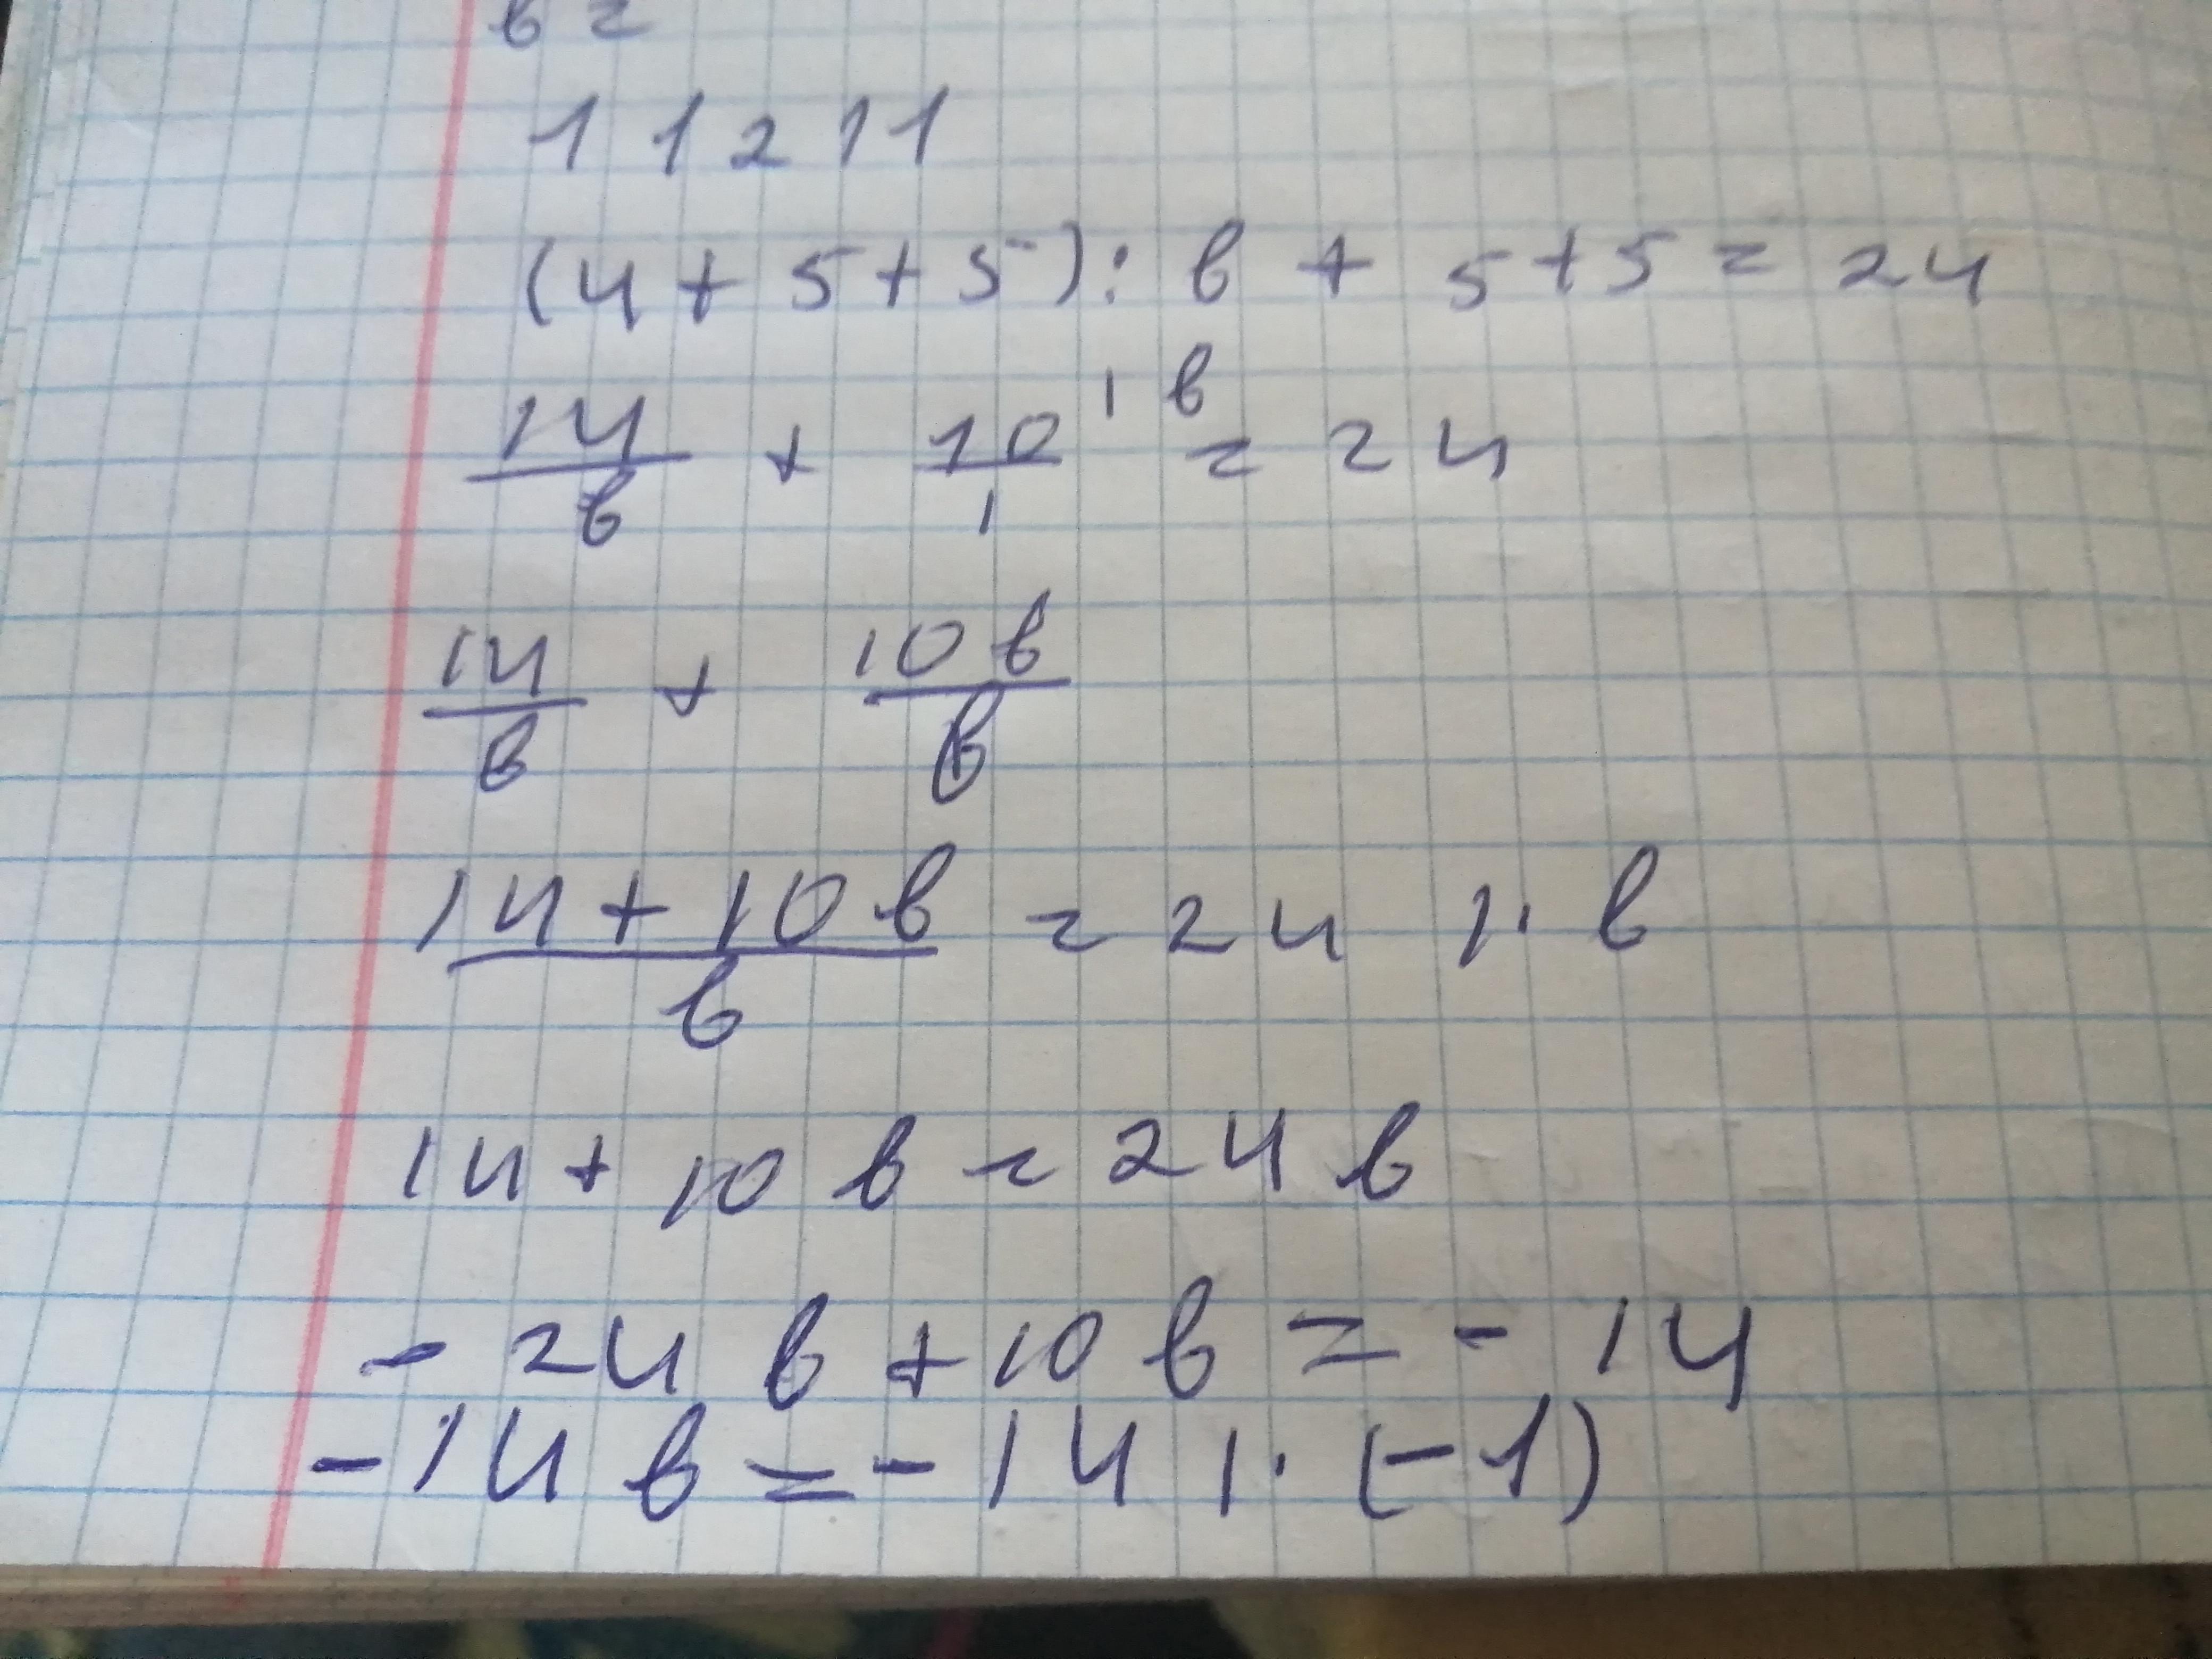 в =
1 1 2 1 1
(4 + 5 + 5) : в + 5 + 5 = 24
14/в + 10/1 |в = 24
14/в + 10в/в
(14 + 10в)/в = 24 |· в
14 + 10в = 24в
- 24в + 10в = - 14
- 14в = - 14 |· (-1)